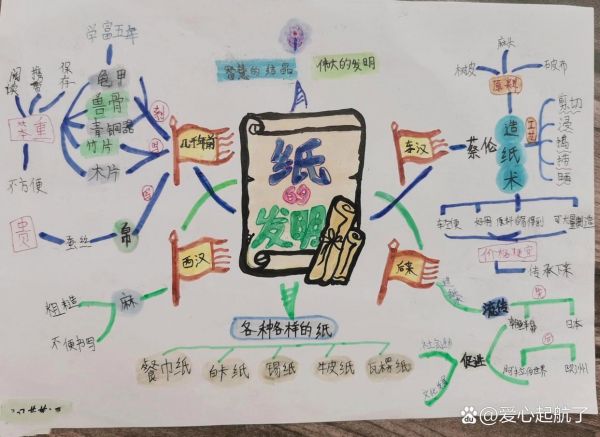 学富五车
智慧的结晶
伟大的发明
纸
的
发明
几千年前
刻
龟甲
兽骨
青铜器
竹片
木片
阅读
携带
保存
笨重
不方便
帛
蚕丝
贵
西汉
麻
粗糙
不便书写
东汉
蔡伦
造纸术
原料
树皮
麻头
破布
工艺
剪切
浸
捣
捞
晒
轻便
好用
原料容易得到
可大量制造
价格便宜
传承下来
后来
流传
先
朝鲜半岛
日本
后
阿拉伯世界
欧洲
促进
社会进步
文化发展
各种各样的纸
餐巾纸
白卡纸
锡纸
牛皮纸
瓦楞纸
爱心起航了